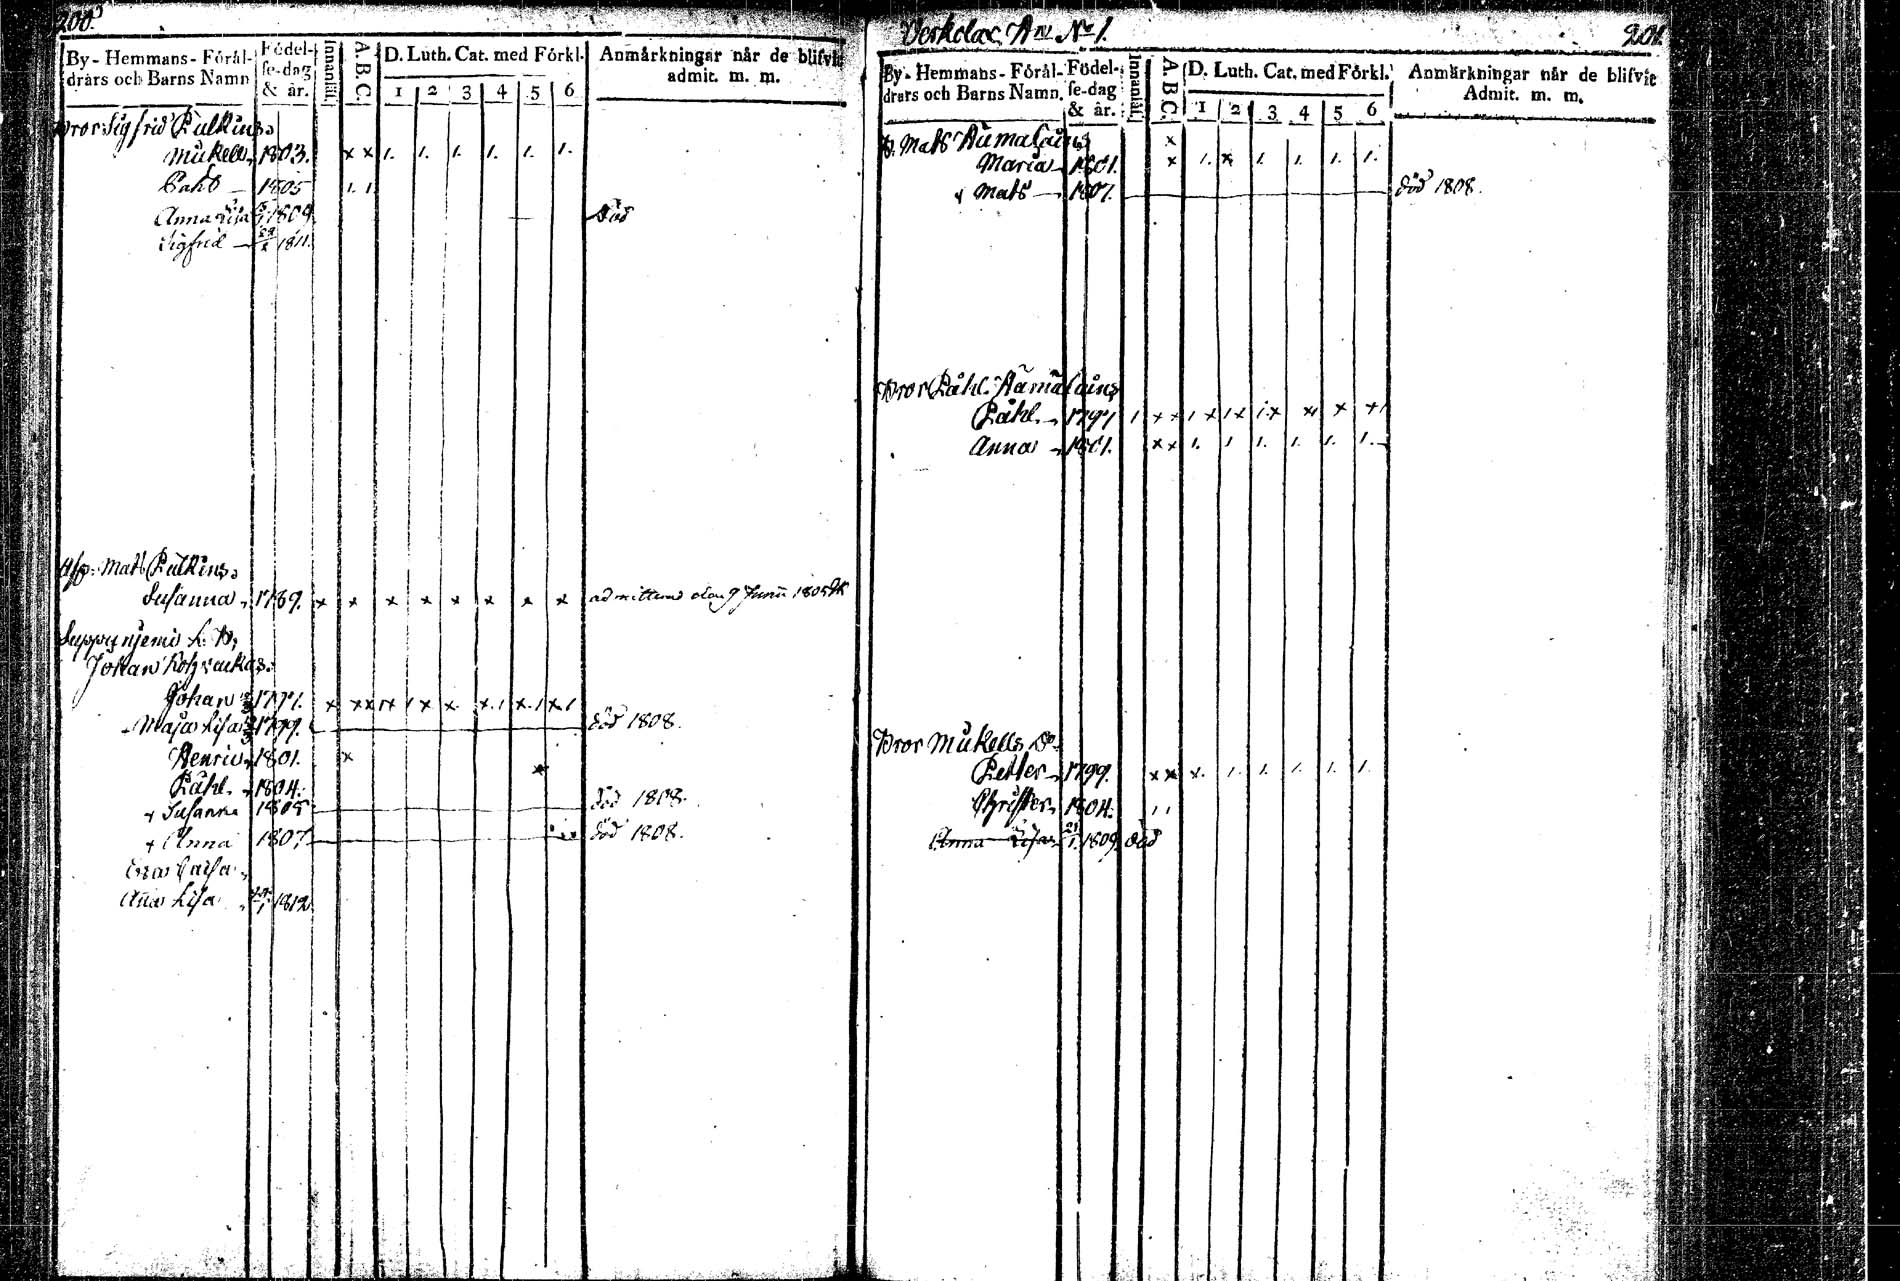 200.
By-Hemmans-Förål-
drars och Barns Namn
Födel-
se-dag
& år.
Innanläs.
A. B. C.
D. Luth. Cat. med Förkl.
1 2 3 4 5 6
Anmårkningar når de blifvit
admit. m. m.
Bror Sigfrid Pulkins
Mickell 1803. x x 1. 1. 1. 1. 1. 1.
Påhl 1805 1. 1
Anna Lisa 1809 Död
Sigfrid 1811.
Mats Pulkins
Susanna 1789. x x x x x x x x admitterad den 9 Junii 1805
Johan
Johan 1797.
Maja Lisa 1799. död 1808.
Henric 1801. x
Påhl 1804.
+ Susanna 1805 död 1808.
+ Anna 1807 död 1808.
Caisa
Anna Lisa 1812
No 1.
201.
By-Hemmans-Förål-
drars och Barns Namn.
Födel-
se-dag
& år.
Innanläs.
A. B. C.
D. Luth. Cat. med Förkl.
1 2 3 4 5 6
Anmärkningar når de blifvit
Admit. m. m.
Mats Hämäläins x
Maria 1801. x 1. x 1. 1. 1. 1.
+ Mats 1807. död 1808.
Bror Påhl Hämäläins
Påhl 1797
Anna 1801. x x 1. 1 1. 1. 1. 1.
Bror Mickells Do
Petter 1799. x x x. 1. 1. 1. 1. 1.
Christer 1804. 1 1
Anna Lisa 21/1 1809. död